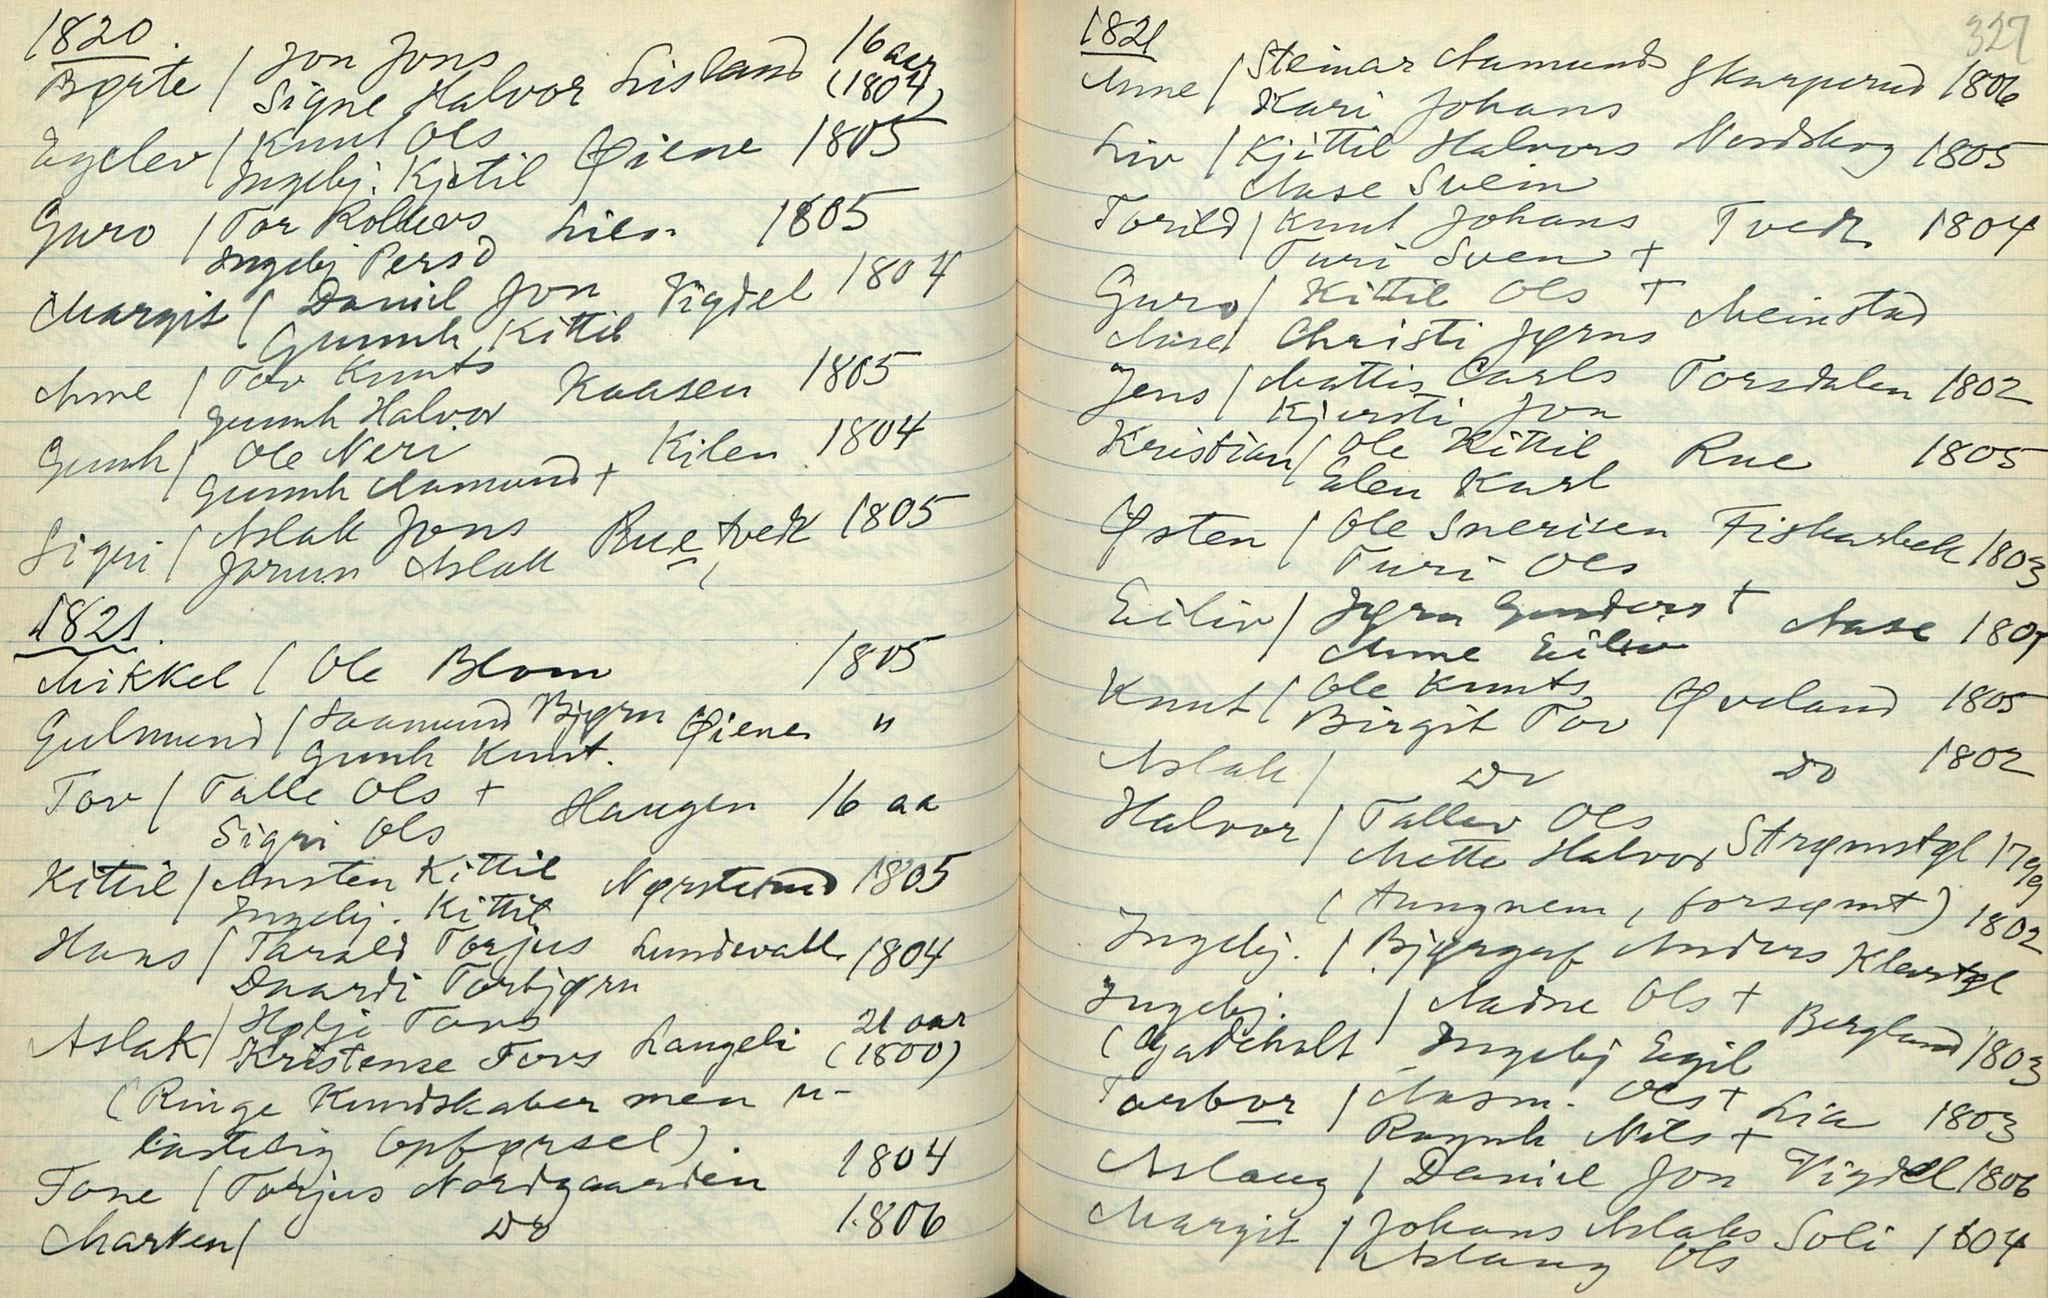 1820.
Børte / Jon Jons 16 aar
Signe Halvor Lisland (1804)
Egelev / Knut Ols
Ingebj. Kjetil Øiene 1805
Guro / Tor Rollevs Lien 1805
Ingebj Persd
Margit / Daniel Jon Vigdel 1804
Gunnh Kittil
Anne / Tov Knuts Kaasen 1805
Gunnh Halvor
Gunh / Ole Neri Kilen 1804
Gunnh Aamund +
Sigri / Aslak Jons Rue, tvek 1805
Jorun Aslak
1821.
Mikkel / Ole Blom 1805
Gulmund / Saamund Bjørn Øiene "
Gunh Knut.
Tov / Talle Ols + Haugen 16 aa
Sigri Ols
Kittil / Austen Kittil Nørsterud 1805
Ingebj. Kittil
Hans / Tarald Torjus Lundevall 1804
Daardi Torbjørn
Aslak / Helje Tovs 21 aar
Kristense Tovs Langeli (1800)
(Ringe Kundskaber men u-
lastelig Opførsel).
Tone / Torjus Nordgaarden 1804
Marken / Do 1806
327
1821
Anne / Steinar Aamunds Skarperud 1806
Kari Johans
Liv / Kjittil Halvors Nordskog 1805
Aase Svein
Torild / Knut Johans Tvedt 1804
Turi Sven +
Guro / Kittil Ols + Meinstad
Aase Christi Jørns
Jens / Mattis Carls Torsdalen 1802
Kjersti Jon
Kristian / Ole Kittil Rue 1805
Elen Karl
Østen / Ole Snerisen Fiskarbek 1803
Turi Ols
Eiliv / Jørn Gunders + Aase
Anne Eiliv
Knut / Ole Knuts Øveland 1805
Birgit Tov
Aslak / Do Do 1802
Halvor / Tallev Ols
Mette Halvor Strømstøl 1799
(tungnem, forsømt)
Ingebj. / Bjørguf Anders Klevstøl 1802
Ingebj. / Aadne Ols + Bergland 1803
Ingebj Egil
Torbor / Aasm. Ols + Lia 1803
Ragnh Nils +
Aslaug / Daniel Jon Vigdel 1806
Margit / Johans Aslaks Soli 1804
Aslaug Ols